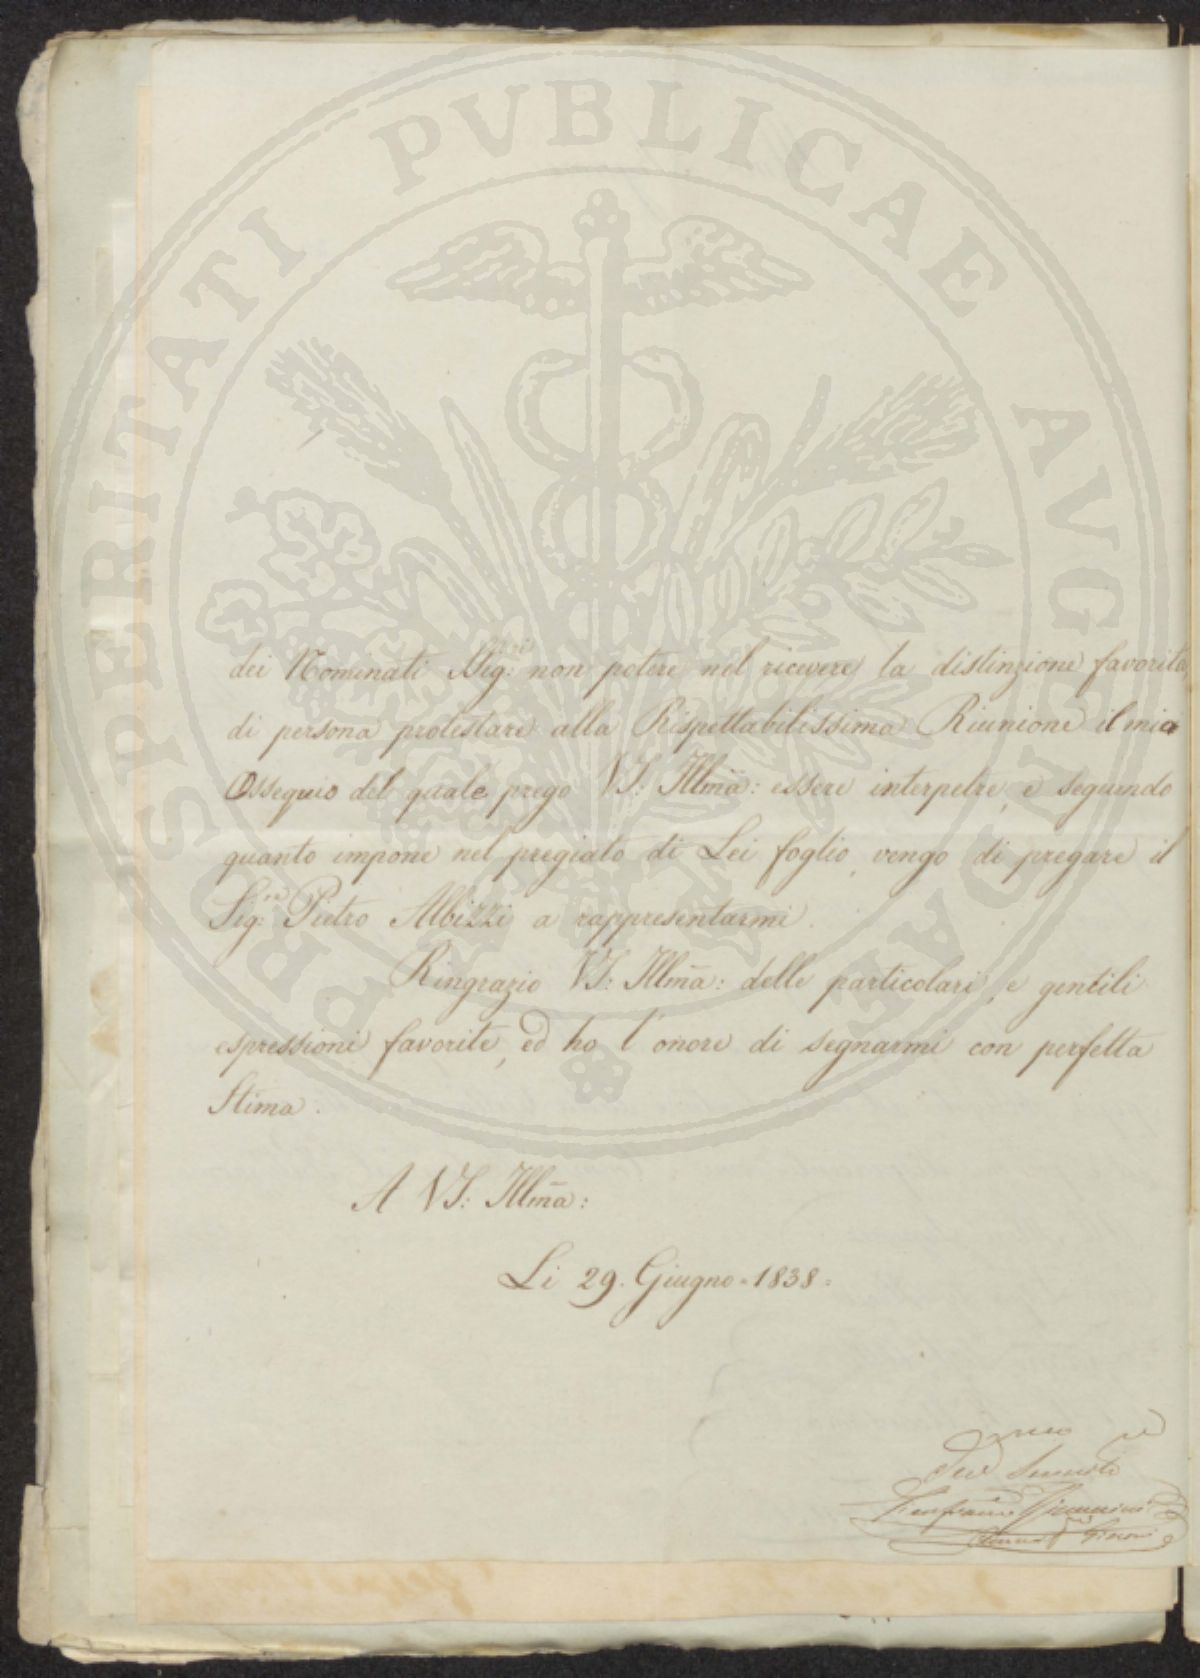 PROSPERITATI PVBLICAE AVGENDAE
dei Nominati SSig:ri non potere nel ricevere la distinzione favorita
di persona protestare alla Rispettabilissima Riunione il mio
Ossequio del quale prego VS: Illma: essere interpetre, e seguendo
quanto impone nel pregiato di Lei foglio, vengo di pregare il
Sig:re Pietro Albizzi a rappresentarmi.
Ringrazio VS: Illma: delle particolari, e gentili
espressioni favorite, ed ho l'onore di segnarmi con perfetta
Stima.
A VS: Illma:
Li 29. Giugno = 1838 =